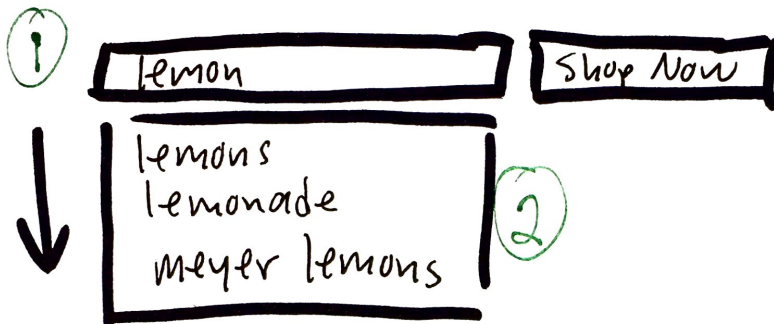 1
lemon
Shop Now
lemons
lemonade
meyer lemons
2